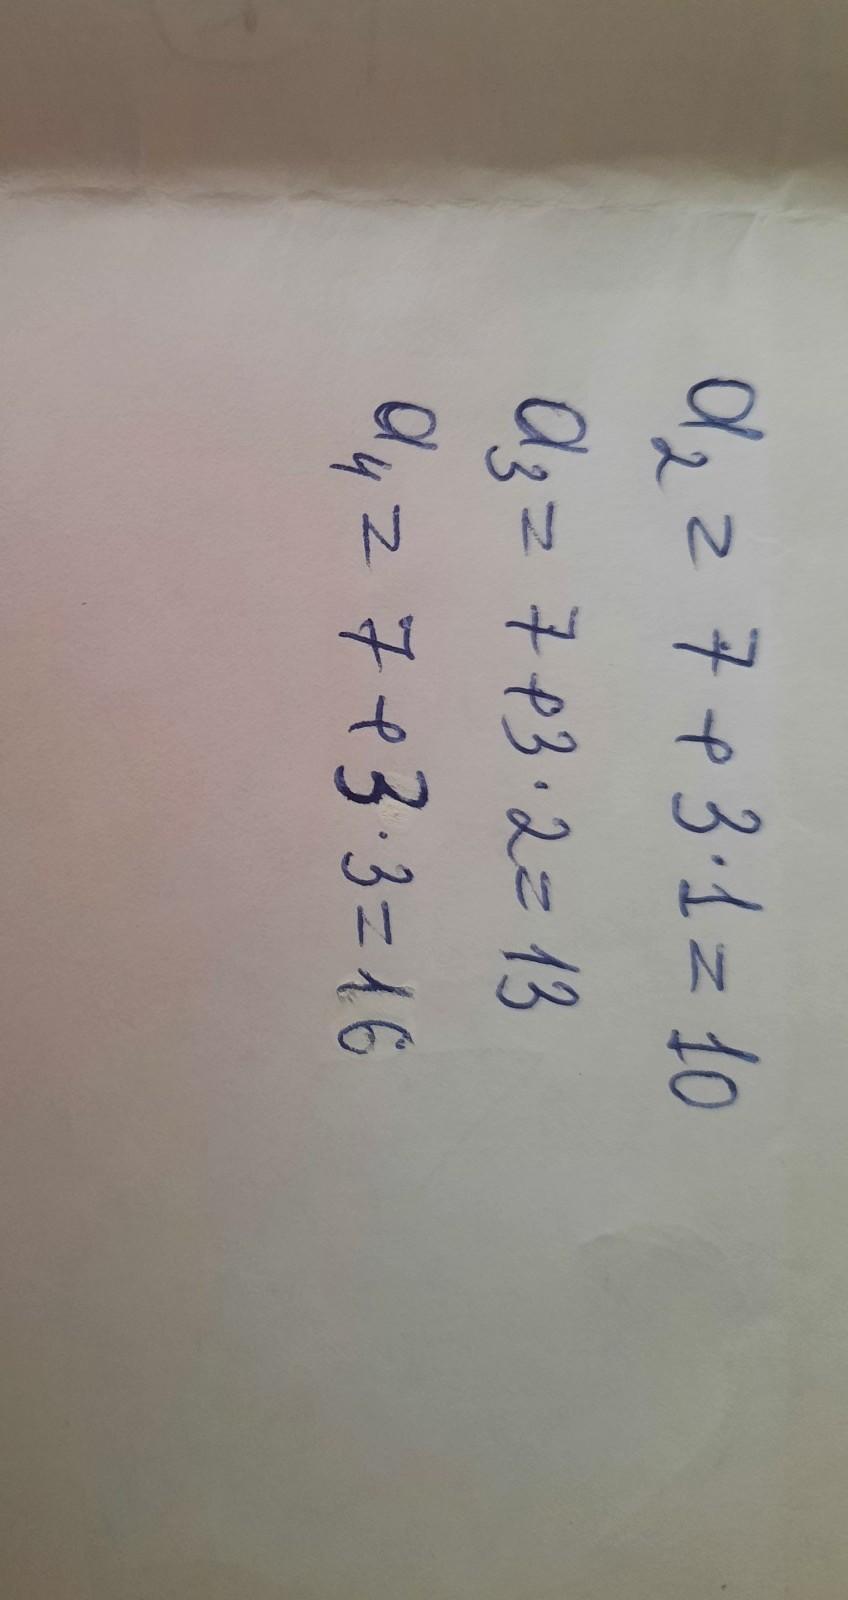 a₂ = 7 + 3·1 = 10
a₃ = 7 + 3·2 = 13
a₄ = 7 + 3·3 = 16